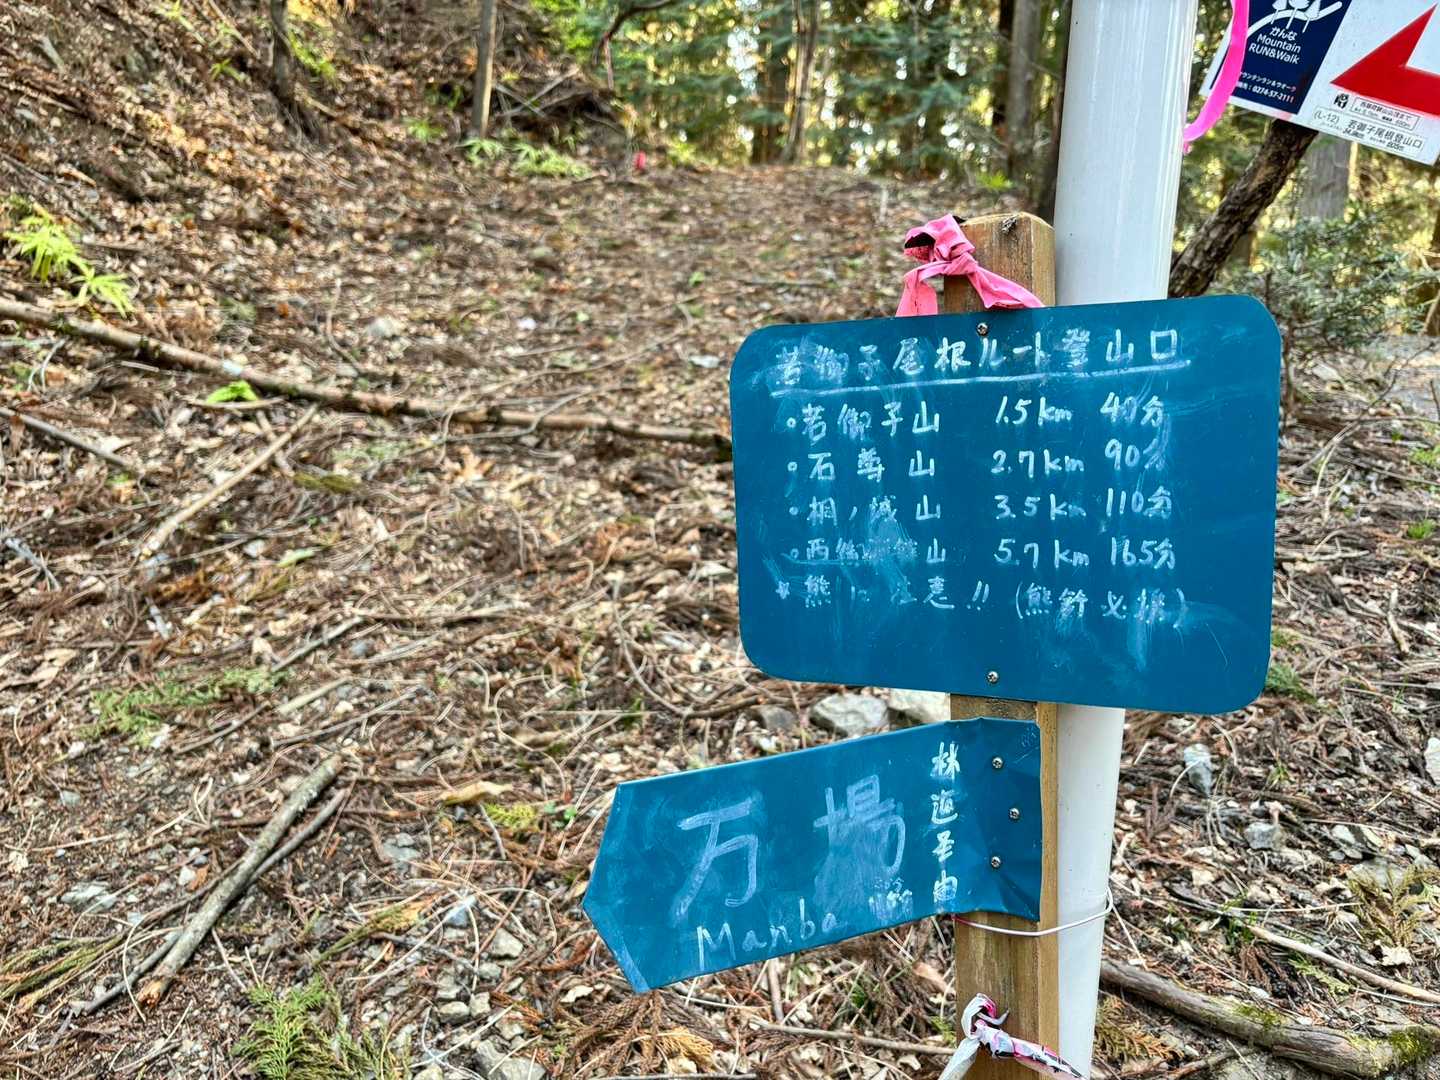 かんな
Mountain
RUN&Walk
0274-57-2111
(L-12) 若御子尾根登山口
若御子尾根ルート登山口
・若御子山 1.5km 40分
・石尊山 2.7km 90分
・桐ノ城山 3.5km 110分
・西御荷鉾山 5.7km 165分
熊に注意!! (熊鈴必携)
万場
Manba
林道経由